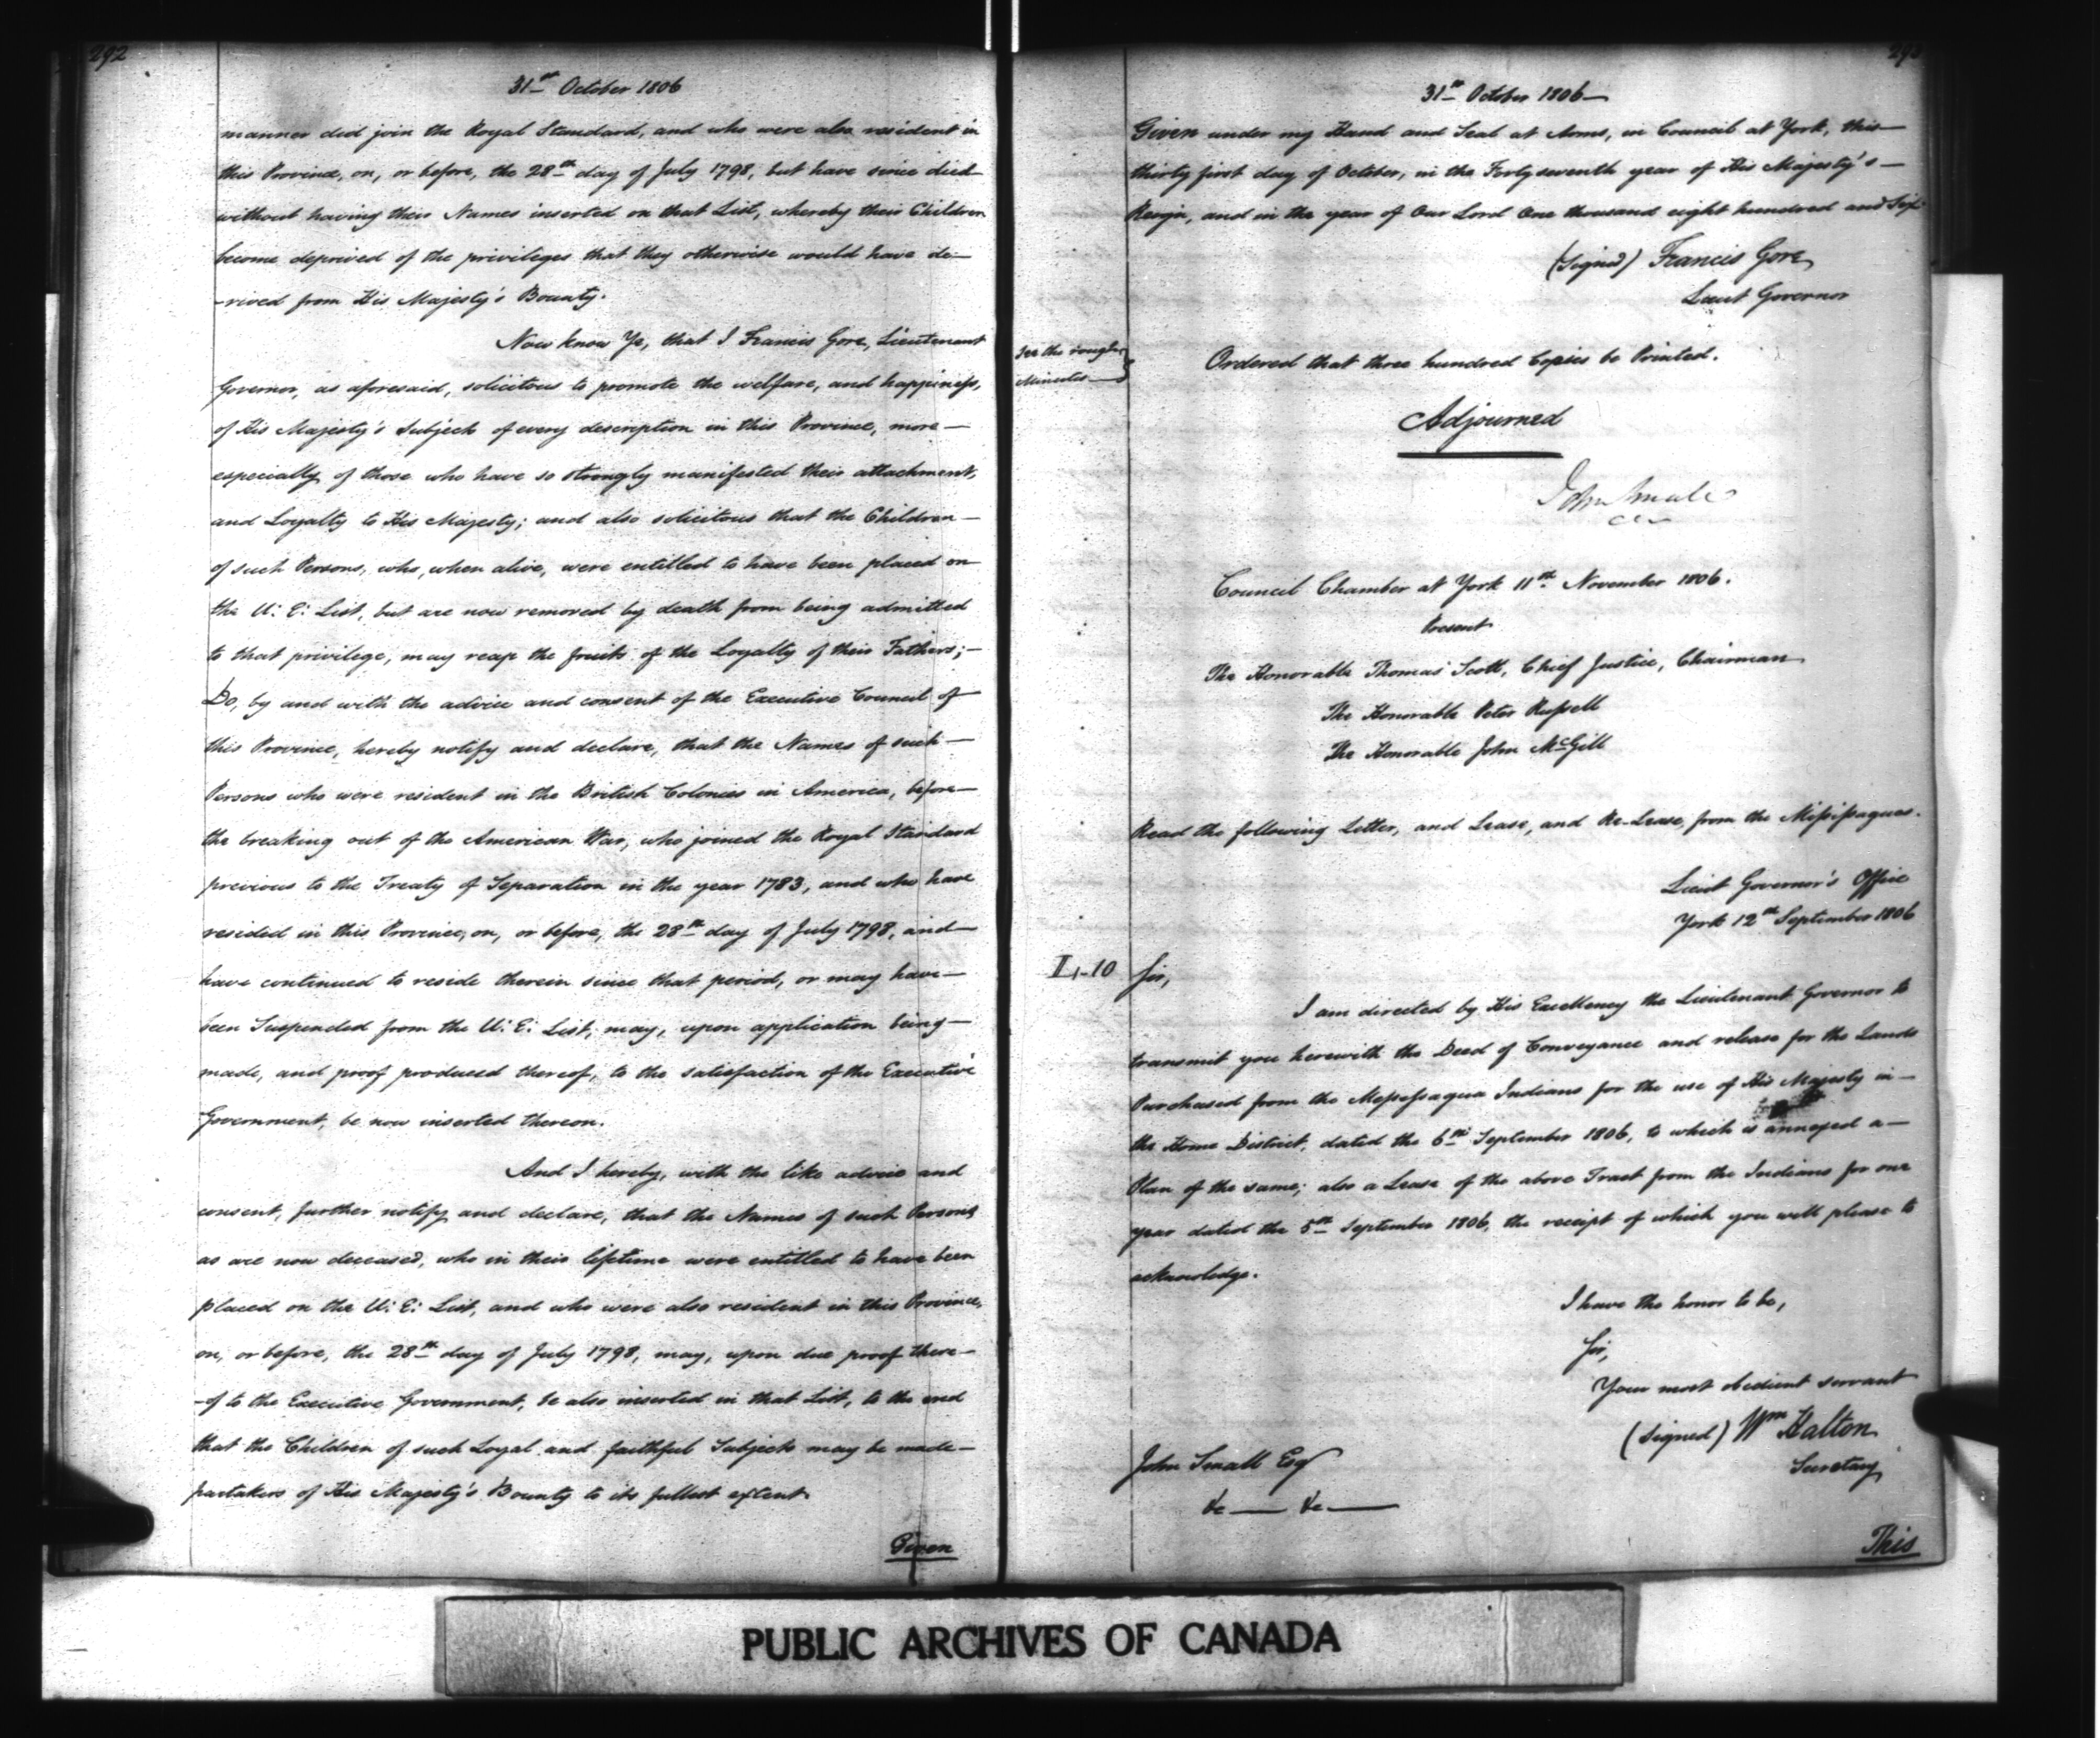 292
31st October 1806
manner did join the Royal Standard, and who were also resident in
this Province, on, or before, the 28th day of July 1798, but have since died
without having their Names inserted on that List, whereby their Children
become deprived of the privileges that they otherwise would have de-
-rived from His Majesty's Bounty.
Now know Ye, that I Francis Gore, Lieutenant
Governor, as aforesaid, solicitous to promote the welfare, and happiness,
of His Majesty's Subjects of every description in this Province, more
especially of those who have so strongly manifested their attachment,
and Loyalty to His Majesty; and also solicitous that the Children
of such Persons, who, when alive, were entitled to have been placed on
the U: E: List, but are now removed by death from being admitted
to that privilege, may reap the fruits of the Loyalty of their Fathers;
Do, by and with the advice and consent of the Executive Council of
this Province, hereby notify and declare, that the Names of such
Persons who were resident in the British Colonies in America, before
the breaking out of the American War, who joined the Royal Standard
previous to the Treaty of Separation in the year 1783, and who have
resided in this Province, on, or before, the 28th day of July 1798, and
have continued to reside therein since that period, or may have
been Suspended from the U: E: List, may, upon application being
made, and proof produced thereof, to the satisfaction of the Executive
Government, be now inserted thereon.
And I hereby, with the like advice and
consent, further notify and declare, that the Names of such Persons
as are now deceased, who in their lifetime were entitled to have been
placed on the U: E: List, and who were also resident in this Province,
on, or before, the 28th day of July 1798, may, upon due proof there-
-of to the Executive Government, be also inserted in that List, to the end
that the Children of such Loyal and faithful Subjects may be made
partakers of His Majesty's Bounty to its fullest extent.
Given
31st October 1806
Given under my Hand and Seal at Arms, in Council at York, this
thirty first day of October, in the Forty seventh year of His Majesty's
Reign, and in the year of Our Lord One thousand eight hundred and Six.
(signed) Francis Gore
Lieut Governor
See the rough
Minutes
Ordered that three hundred Copies be Printed.
Adjourned
John Small
Council Chamber at York 11th November 1806.
Present
The Honorable Thomas Scott, Chief Justice, Chairman
The Honorable Peter Russell
The Honorable John McGill
Read the following Letter, and Lease, and Re-Lease, from the Missisaguas.
Lieut Governor's Office
York 12th September 1806
I,-10
Sir,
I am directed by His Excellency the Lieutenant Governor to
transmit you herewith the Deed of Conveyance and release for the Lands
Purchased from the Messessagua Indians for the use of His Majesty in
the Home District, dated the 6th September 1806, to which is annexed a
Plan of the same; also a Lease of the above Tract from the Indians for one
year dated the 5th September 1806, the receipt of which you will please to
acknowledge.
I have the honor to be,
Sir,
Your most obedient servant
(signed) Wm Halton
Secretary
John Small Esq
&c &c
This
PUBLIC ARCHIVES OF CANADA